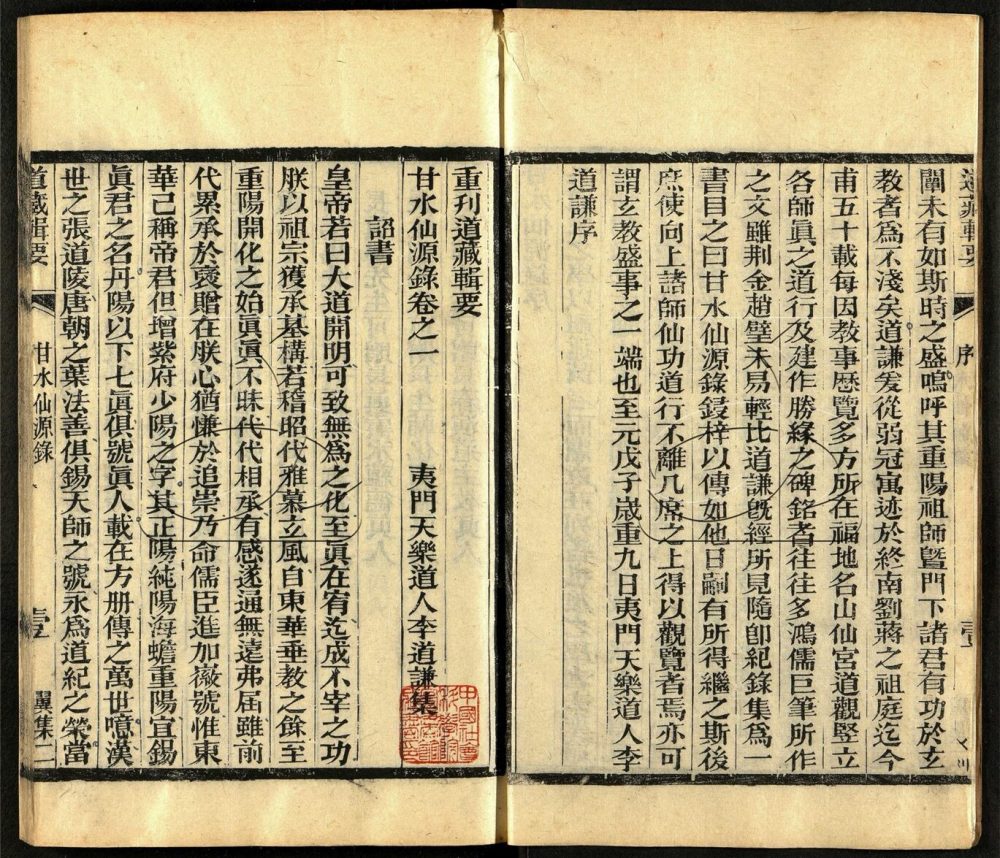 道藏輯要
序
壹
闡未有如斯時之盛嗚呼其重陽祖師曁門下諸君有功於玄
教者爲不淺矣道謙爰從弱冠寓迹於終南劉蔣之祖庭迄今
甫五十載每因教事歷覽多方所在福地名山仙宮道觀竪立
各師眞之道行及建作勝緣之碑銘者往往多鴻儒巨筆所作
之文雖荆金趙璧未易輕比道謙旣經所見隨卽紀錄集爲一
書目之曰甘水仙源錄鋟梓以傳如他日嗣有所得繼之斯後
庶使向上諸師仙功道行不離几席之上得以觀覽者焉亦可
謂玄教盛事之一端也至元戊子歲重九日夷門天樂道人李
道謙序
重刊道藏輯要
甘水仙源錄卷之一
夷門天樂道人李道謙集
詔書
皇帝若曰大道開明可致無爲之化至眞在宥迄成不宰之功
朕以祖宗獲承基構若稽昭代雅慕玄風自東華垂教之餘至
重陽開化之始眞眞不昧代代相承有感遂通無遠弗届雖前
代累承於褒贈在朕心猶慊於追崇乃命儒臣進加徽號惟東
華已稱帝君但增紫府少陽之字其正陽純陽海蟾重陽宜錫
眞君之名丹陽以下七眞俱號眞人載在方册傳之萬世噫漢
世之張道陵唐朝之葉法善俱錫天師之號永爲道紀之榮當
道藏輯要
甘水仙源錄
壹
翼集二